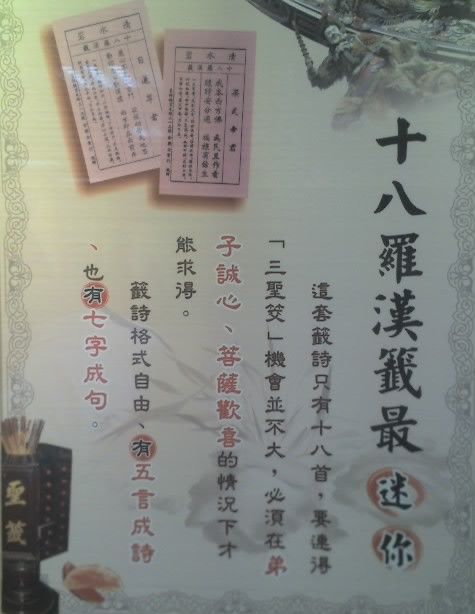 十八羅漢籤最迷你
這套籤詩只有十八首，要連得
「三聖筊」機會並不大，必須在弟
子誠心、菩薩歡喜的情況下才
能求得。
籤詩格式自由、有五言成詩
、也有七字成句。
清水岩
十八羅漢籤
梁武帝君
清水岩
十八羅漢籤
聖籤